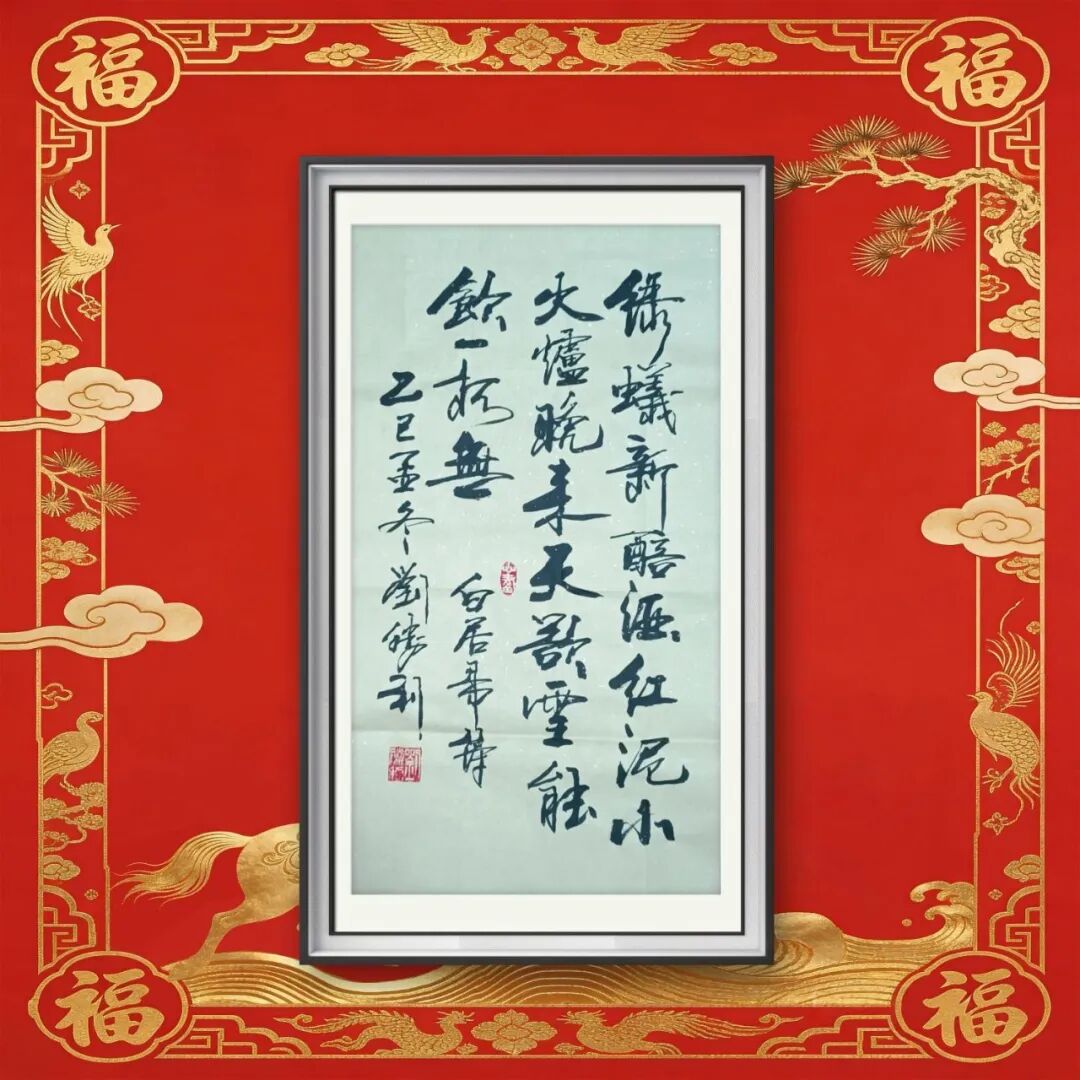 福
福
綠蟻新醅酒紅泥小
火爐晚来天欲雪能
飲一杯無
白居易詩
乙巳孟冬劉勝利
福
福